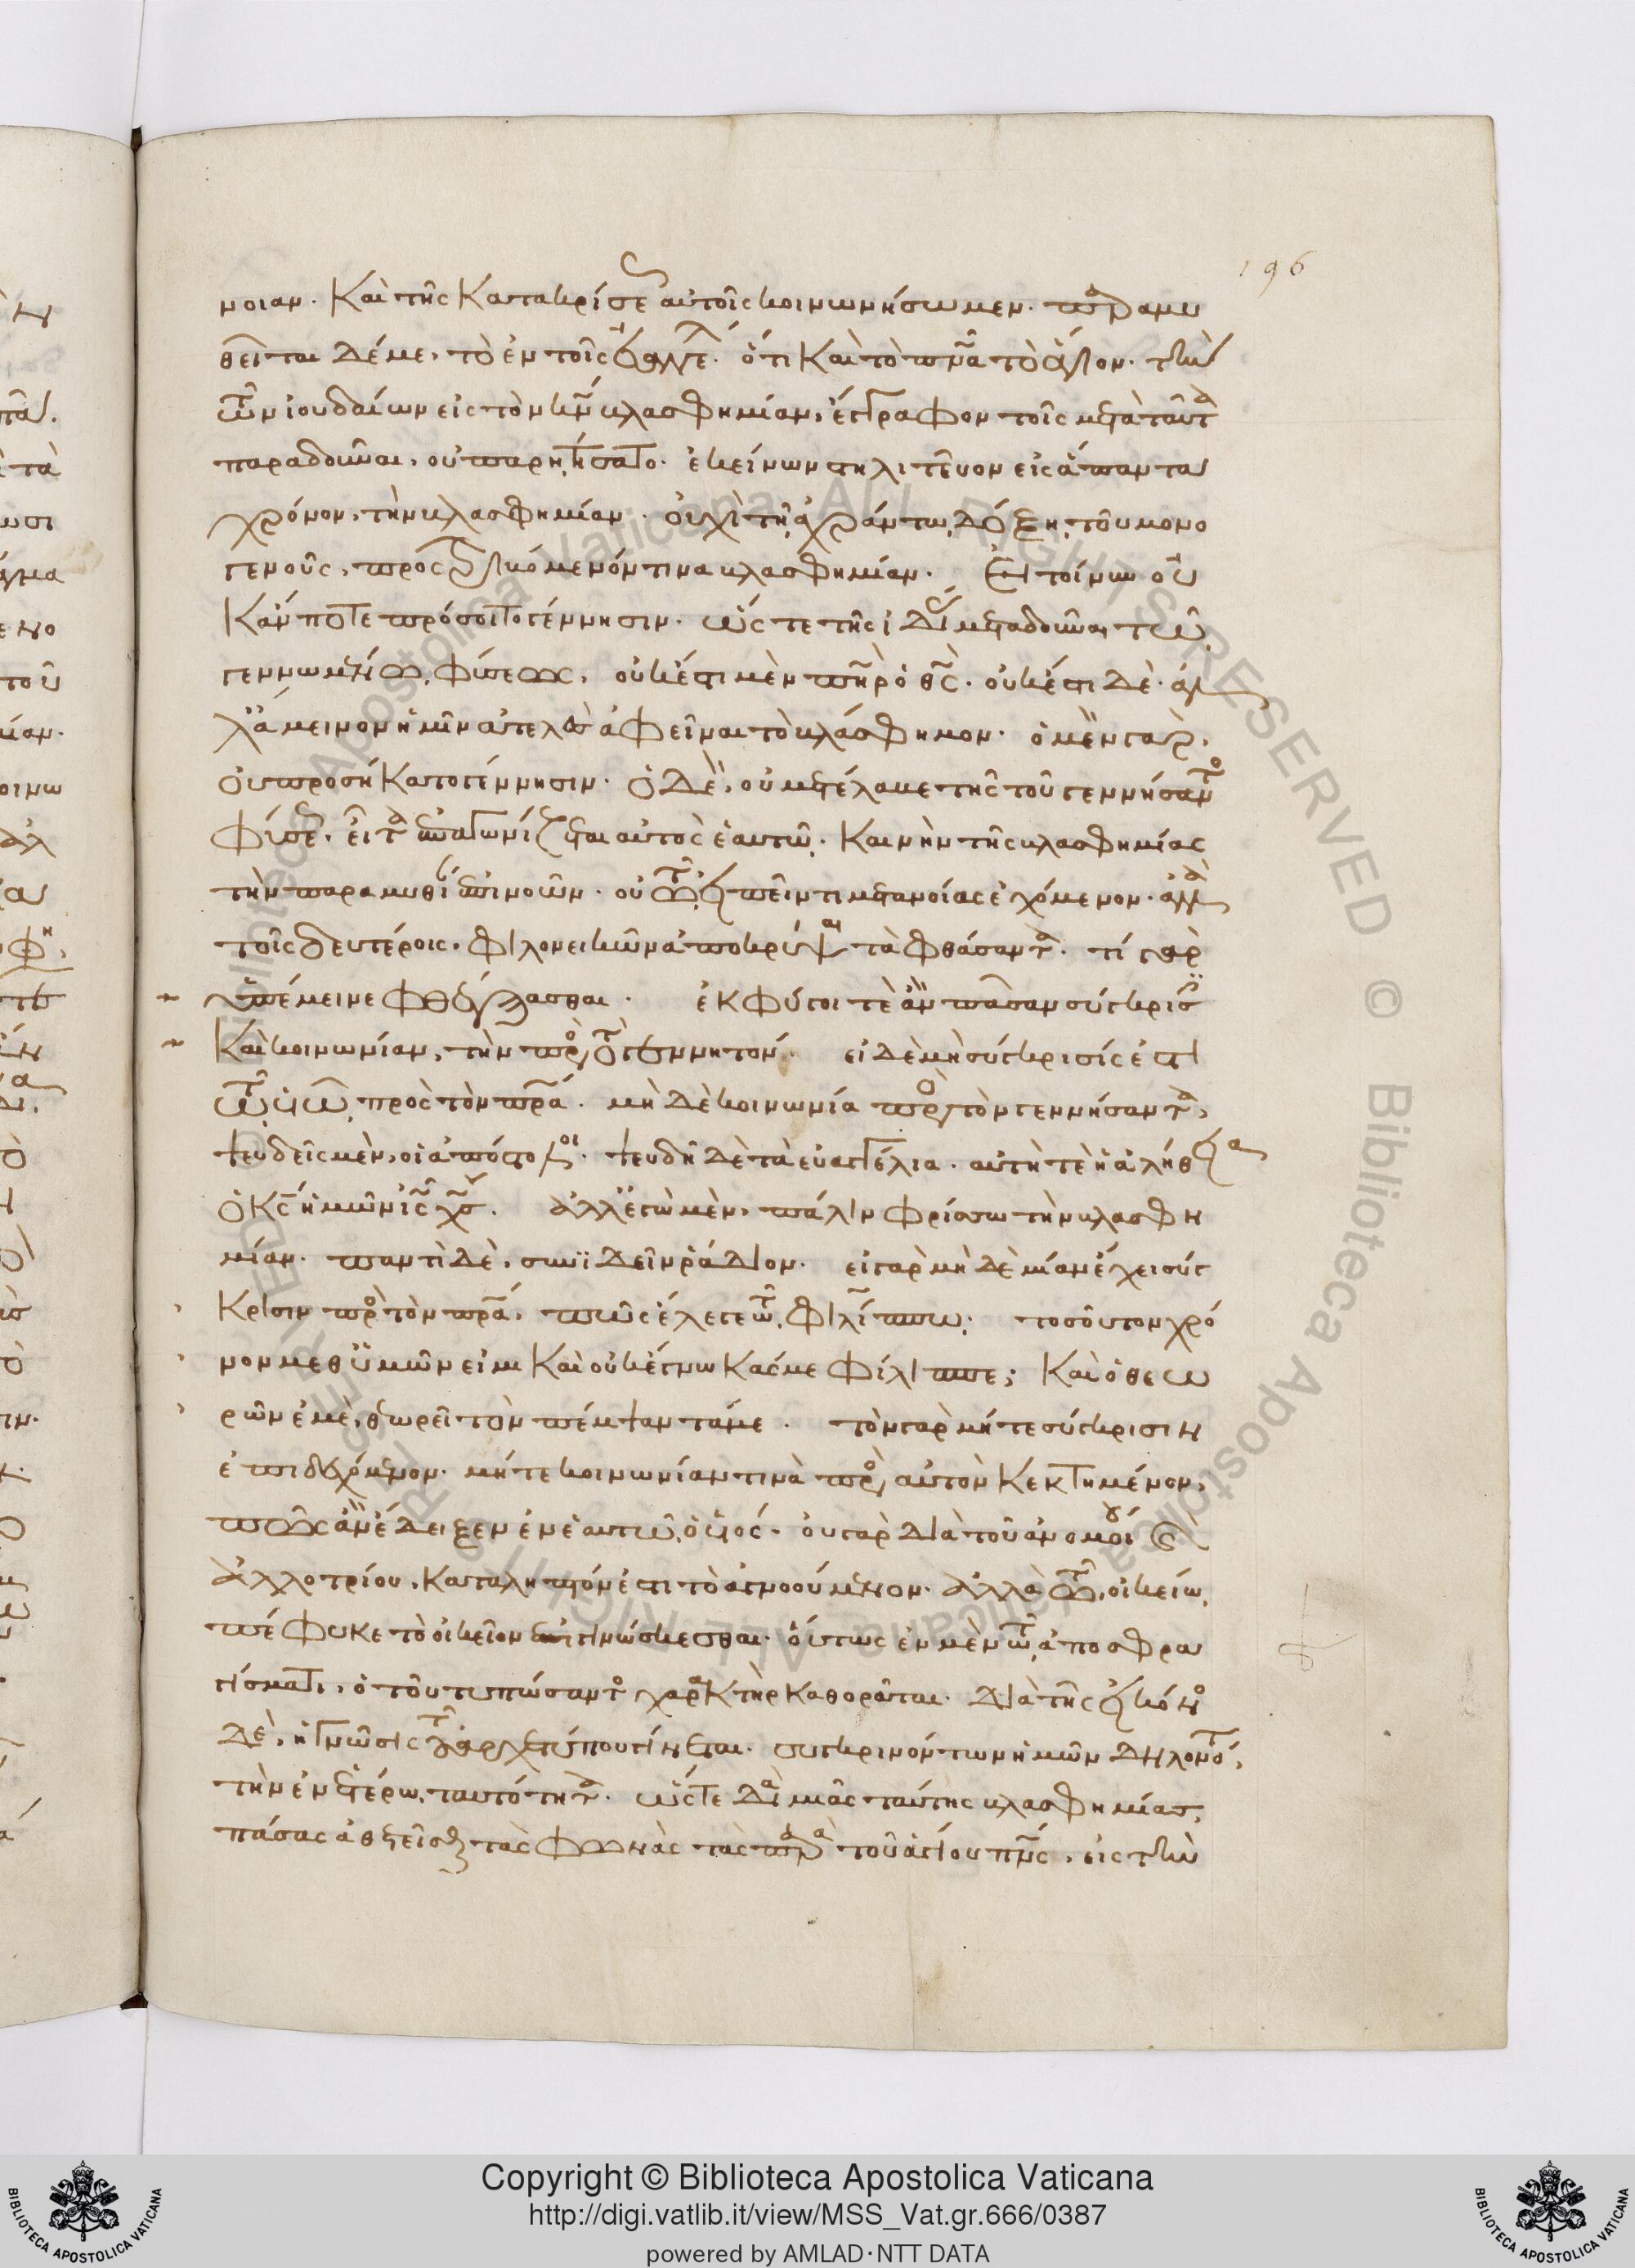 196
νοιαν. Καὶ τῆς κατακρίσεως αὐτοῖς κοινωνήσωμεν. παραμυ
θεῖται δέ με, τὸ ἐν τοῖς εὐαγγελίοις. ὅτι καὶ τὸ πνᾶ τὸ ἅγιον. τὴν
τῶν ἰουδαίων εἰς τὸν κν βλασφημίαν, ἔγγραφον τοῖς μετὰ ταῦτα
παραδοῦναι, οὐ παρῃτήσατο. ἐκείνων στηλιτεῦον εἰς ἅπαντα
χρόνον, τὴν βλασφημίαν. οὐχὶ τῇ ἀχράντῳ δόξῃ τοῦ μονο
γενοῦς, προστριβόμενόν τινα βλασφημίαν. Εἰ τοίνυν οὐ
κἄν ποτε πρόσοιτο γέννησιν. ὥς τε τῆς ἰδίας μεταδοῦναι τῷ
γεννωμένῳ φύσεως, οὐκέτι μὲν πηρ ὁ θς. οὐκέτι δὲ. ἀλ
λ' ἄμεινον ἡμῖν ἀτελὲς ἀφεῖναι τὸ βλάσφημον. ὁ μὲν γὰρ,
οὐ προσήκατο γέννησιν. ὁ δὲ, οὐ μετέλαβε τῆς τοῦ γεννήσαντος
φύσεως. εἶτα ἐπαγωνίζεται αὐτὸς ἑαυτῷ. καινὴν τῆς βλασφημίας
τὴν παραμυθίαν ἐπινοῶν. οὐ τῷ εἰπεῖν τι μετανοίας ἐχόμενον. ἀλλὰ
τοῖς δευτέροις, φιλονεικῶν ἀποκρύψαι τὰ φθάσαντα. τί γὰρ
ὑπέμεινε φθέγξασθαι. ἐκφύγοι τε ἂν πᾶσαν σύγκρισιν
Καὶ κοινωνίαν, τὴν πρὸς τὸ γεννητόν. εἰ δὲ μὴ σύγκρισίς ἐστι
τῷ υἱῶ πρὸς τὸν πρα. μὴ δὲ κοινωνία πρὸς τὸν γεννήσαντα,
ψευδεῖς μὲν, οἱ ἀπόστολοι. ψευδῆ δὲ τὰ εὐαγγέλια. αὐτή τε ἡ ἀλήθεια
ὁ κς ἡμῶν ις χς. ἀλλ' ἐγὼ μὲν, πάλιν φρίσσω τὴν βλασφη
μίαν. παντὶ δὲ, συνϊδεῖν ῥάδιον. εἰ γὰρ μὴ δὲ μίαν ἔχει σύγ
κρισιν πρὸς τὸν πρα, πῶς ἔλεγε τῷ φιλίππω; τοσοῦτον χρό
νον μεθ' ὑμῶν εἰμι καὶ οὐκ ἔγνωκάς με φίλιππε; Καὶ ὁ θεω
ρῶν ἐμὲ, θεωρεῖ τὸν πέμψαντά με. τὸν γὰρ μήτε σύγκρισιν
ἐπιδεχόμενον. μήτε κοινωνίαν τινὰ πρὸς αὐτὸν κεκτημένον,
πῶς ἂν ἔδειξεν ἐν ἑαυτῷ, ὁ υἱός. οὐ γὰρ διὰ τοῦ ἀνομοίου καὶ
ἀλλοτρίου, καταληπτόν ἐστι τὸ ἀγνοούμενον. ἀλλὰ τῷ οἰκείῳ,
πέφυκε τὸ οἰκεῖον ἐπιγινώσκεσθαι. οὕτως ἐν μὲν τῷ ἀποσφρα
γίσματι, ὁ τοῦ τυπώσαντος χαρακτὴρ καθορᾶται. διὰ τῆς εἰκόνος
δὲ, ἡ γνῶσις τοῦ ἀρχετύπου γίνεται. συγκρινόντων ἡμῶν δηλονότι,
τὴν ἐν ἑτέρῳ ταυτότητα. ὥστε διὰ μιᾶς ταύτης βλασφημίας,
πάσας ἀθετεῖσθαι τὰς φωνὰς τὰς παρὰ τοῦ ἁγίου πνς, εἰς τὴν
Copyright © Biblioteca Apostolica Vaticana
http://digi.vatlib.it/view/MSS_Vat.gr.666/0387
powered by AMLAD·NTT DATA